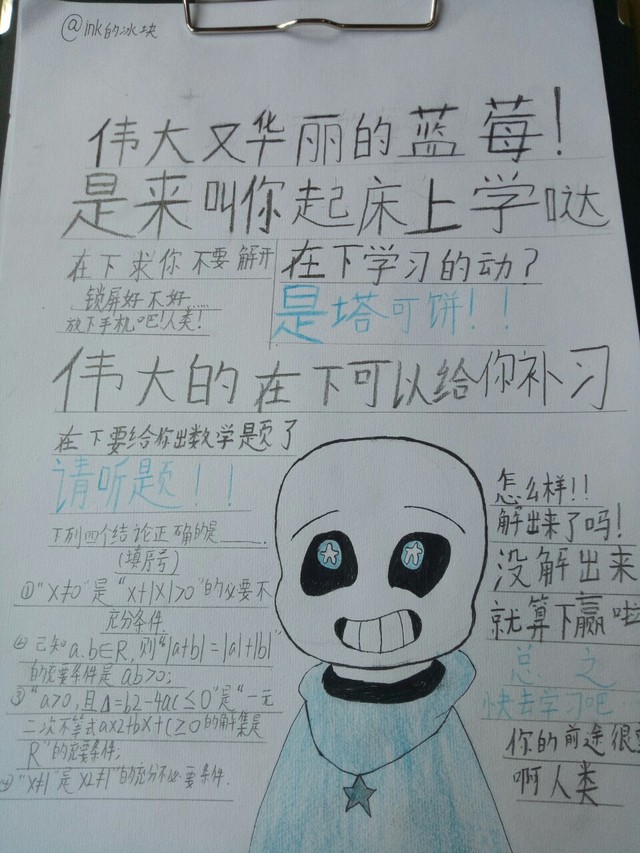 @ink的冰块
伟大又华丽的蓝莓!
是来叫你起床上学哒
在下求你不要解开
锁屏好不好......
放下手机吧!人类!
在下学习的动?
是塔可饼!!
伟大的在下可以给你补习
在下要给你出数学题了
请听题!!
下列四个结论正确的是____.
(填序号)
①"x≠0"是"x+|x|>0"的必要不
充分条件.
②已知a.b∈R,则"|a+b|=|a|+|b|"
的充要条件是ab>0;
③"a>0,且Δ=b2-4ac≤0"是"一元
二次不等式ax2+bx+c≥0的解集是
R"的充要条件;
④"x≠1"是"x2≠1"的充分不必要条件.
怎么样!!
解出来了吗!
没解出来
就算下赢啦
总之
快去学习吧
你的前途很
啊人类